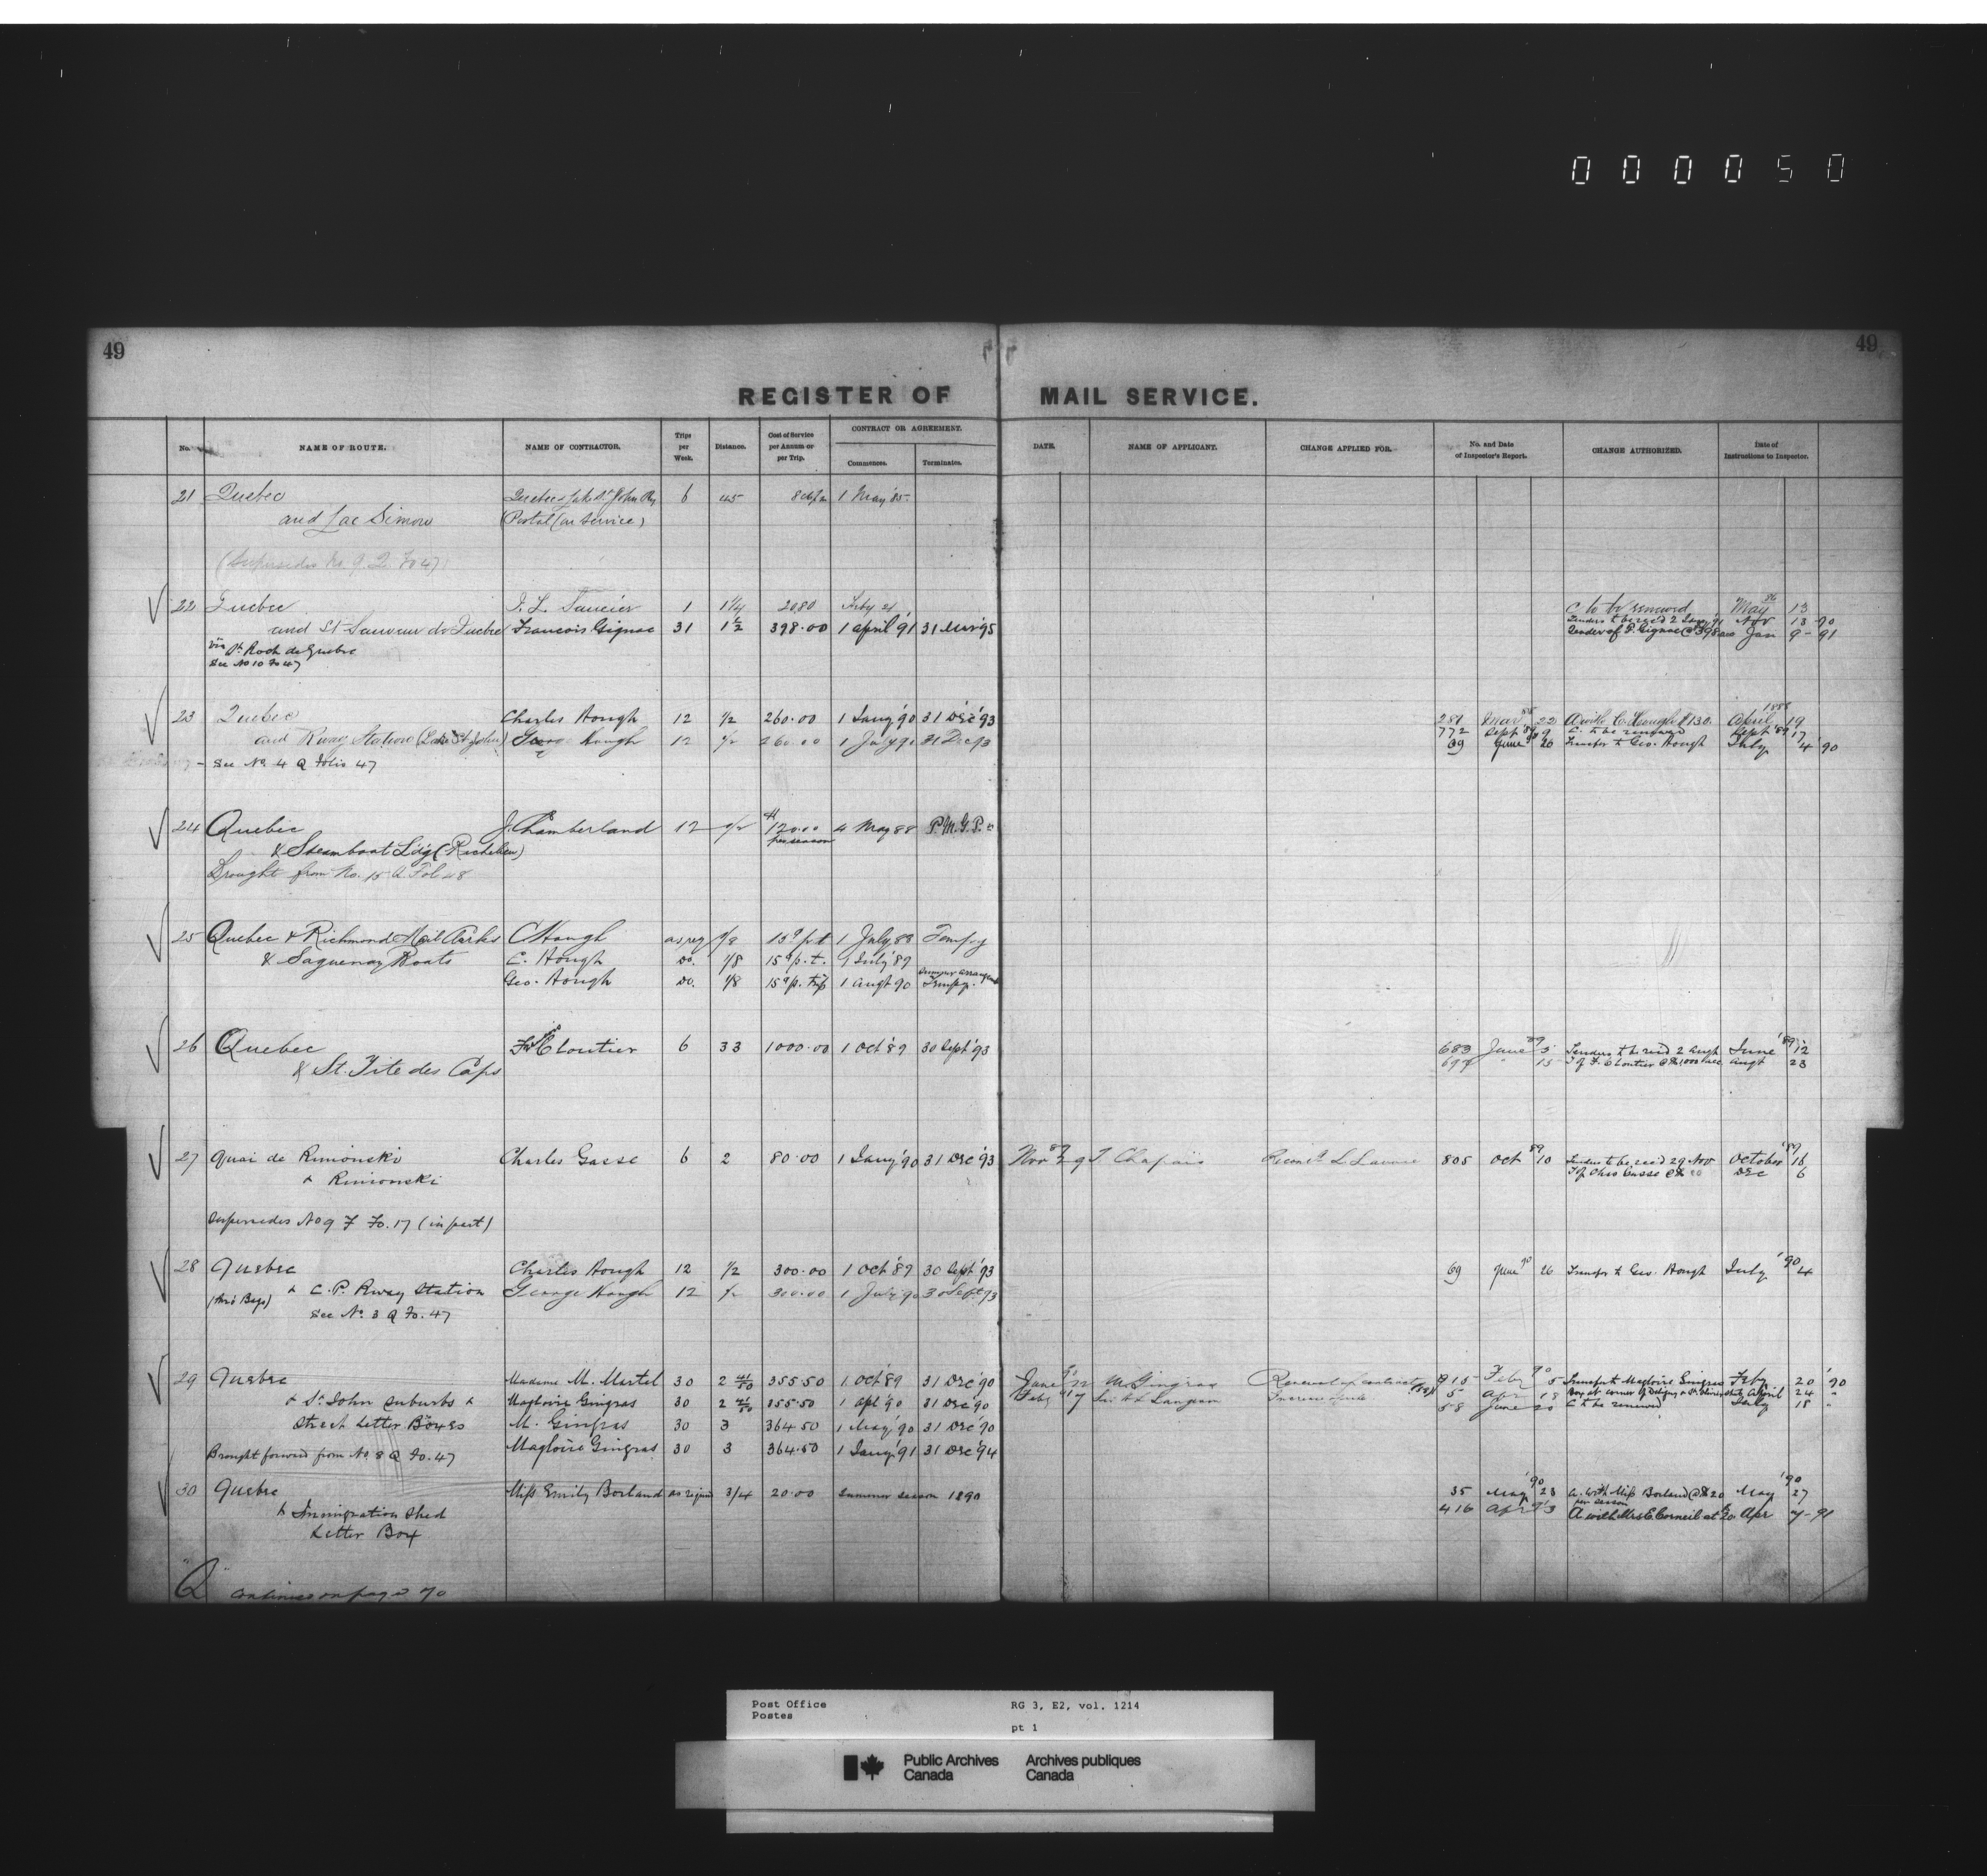 000050
49 49
REGISTER OF MAIL SERVICE.
No. NAME OF ROUTE. NAME OF CONTRACTOR. Trips per Week. Distance. Cost of Service per Annum or per Trip. CONTRACT OR AGREEMENT. Commences. Terminates. DATE. NAME OF APPLICANT. CHANGE APPLIED FOR. No. and Date of Inspector's Report. CHANGE AUTHORIZED. Date of Instructions to Inspector.
21 Quebec Quebec & Lake St John Ry 6 45 1 May '85
and Lac Simon (Postal Car Service)
(Supersedes No. 9. Q Fo 47)
22 Quebec 1 1¼ 20.80 C to be renewed May 86 13
and St Sauveur de Quebec Francois Gignac 31 1½ 398.00 1 april 91 31 Mar '95 Nov 13 90
Tender of F. Gignac @ $398 Jan 9 - 91
via St Roch de Quebec
See No 10 Fo 47
23 Quebec Charles Hough 12 ½ 260.00 1 Jany '90 31 Dec '93 281 Mar 88 22 A with C. Hough $130. April 1888 19
and Rway Station (Lake St John) George Hough 12 ½ 260.00 1 July 90 31 Dec 93 772 Sept '89 9 C. to be renewed Sept '89 17
69 June 90 26 Transfer to Geo. Hough July 4 '90
See No 4 Q Folio 47
24 Quebec J. Chamberland 12 120.00 4 May 88 P.M.G.P.
per season
& Steamboat Ldg (Richelieu)
Brought from No. 15 Q. Fol 48
25 Quebec & Richmond Mail Clerks C Hough as req 1/8 15c p t 1 July 88 Tempy
& Saguenay Boats C. Hough Do. 1/8 15c p. t. 1 July '89
Geo. Hough Do. 1/8 15c p. trip 1 augt 90 Tempy.
26 Quebec Cloutier 6 33 1000.00 1 Oct '89 30 Sept '93 683 June 89 5 Tenders to be recd 2 Augt June '89 12
& St. Tite des Caps 15 T of F. Cloutier @ $1000 augt 23
27 Quai de Rimouski Charles Gasse 6 2 80.00 1 Jany '90 31 Dec '93 Nov 89 29 T. Chapais 805 Oct 89 10 Tenders to be recd 29 Nov October '89 16
& Rimouski T of Chas Gasse @ $80 Dec 6
Supersedes No 9 F Fo. 17 (in part)
28 Quebec Charles Hough 12 ½ 300.00 1 Oct '89 30 Sept '93 69 June 90 26 Transfer to Geo. Hough July '90 4
(Thro Bags) & C.P. Rway Station George Hough 12 ½ 300.00 1 July 90 30 Sept 93
See No. 3 Q Fo. 47
29 Quebec Madame M. Martel 30 2 41/50 355.50 1 Oct '89 31 Dec '90 June 90 M Gingras Renewal of contract 915 Feby 90 5 Transfer to Magloire Gingras Feby 20 '90
& St. John Suburbs & Magloire Gingras 30 2 41/50 355.50 1 Apl '90 31 Dec '90 Feby 91 7 Langevin 5 Apr 18 April 24 "
Street Letter Boxes M. Gingras 30 3 364.50 1 May '90 31 Dec '90 58 June 20 C to be renewed July 18 "
Brought forward from No. 8 Q Fo. 47 Magloire Gingras 30 3 364.50 1 Jany '91 31 Dec '94
30 Quebec Miss Emily Borland as reqd 3/4 20.00 Summer season 1890 35 May '90 23 A. with Miss Borland @ $20 per season May '90 27
& Immigration Shed 416 Apr 91 3 A with Mrs C. Corneil at 20. Apr 7 - 91
Letter Box
"Q" continued on page 70
Post Office RG 3, E2, vol. 1214
Postes
pt 1
Public Archives Archives publiques
Canada Canada